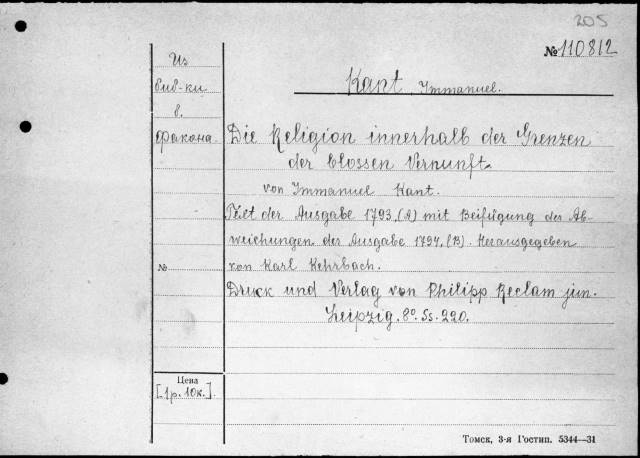 205
№110812
Kant Immanuel.
Из
биб-ки
в.
Факона
Die Religion innerhalb der Grenzen
der blossen Vernunft.
von Immanuel Kant.
Text der Ausgabe 1793, (A) mit Beifügung der Ab-
weichungen der Ausgabe 1794, (B). Herausgegeben
№
von Karl Kehrbach.
Druck und Verlag von Philipp Reclam jun.
Leipzig. 8°. Ss. 220.
Цена
[1р. 10к.].
Томск, 3-я Гостип. 5344—31